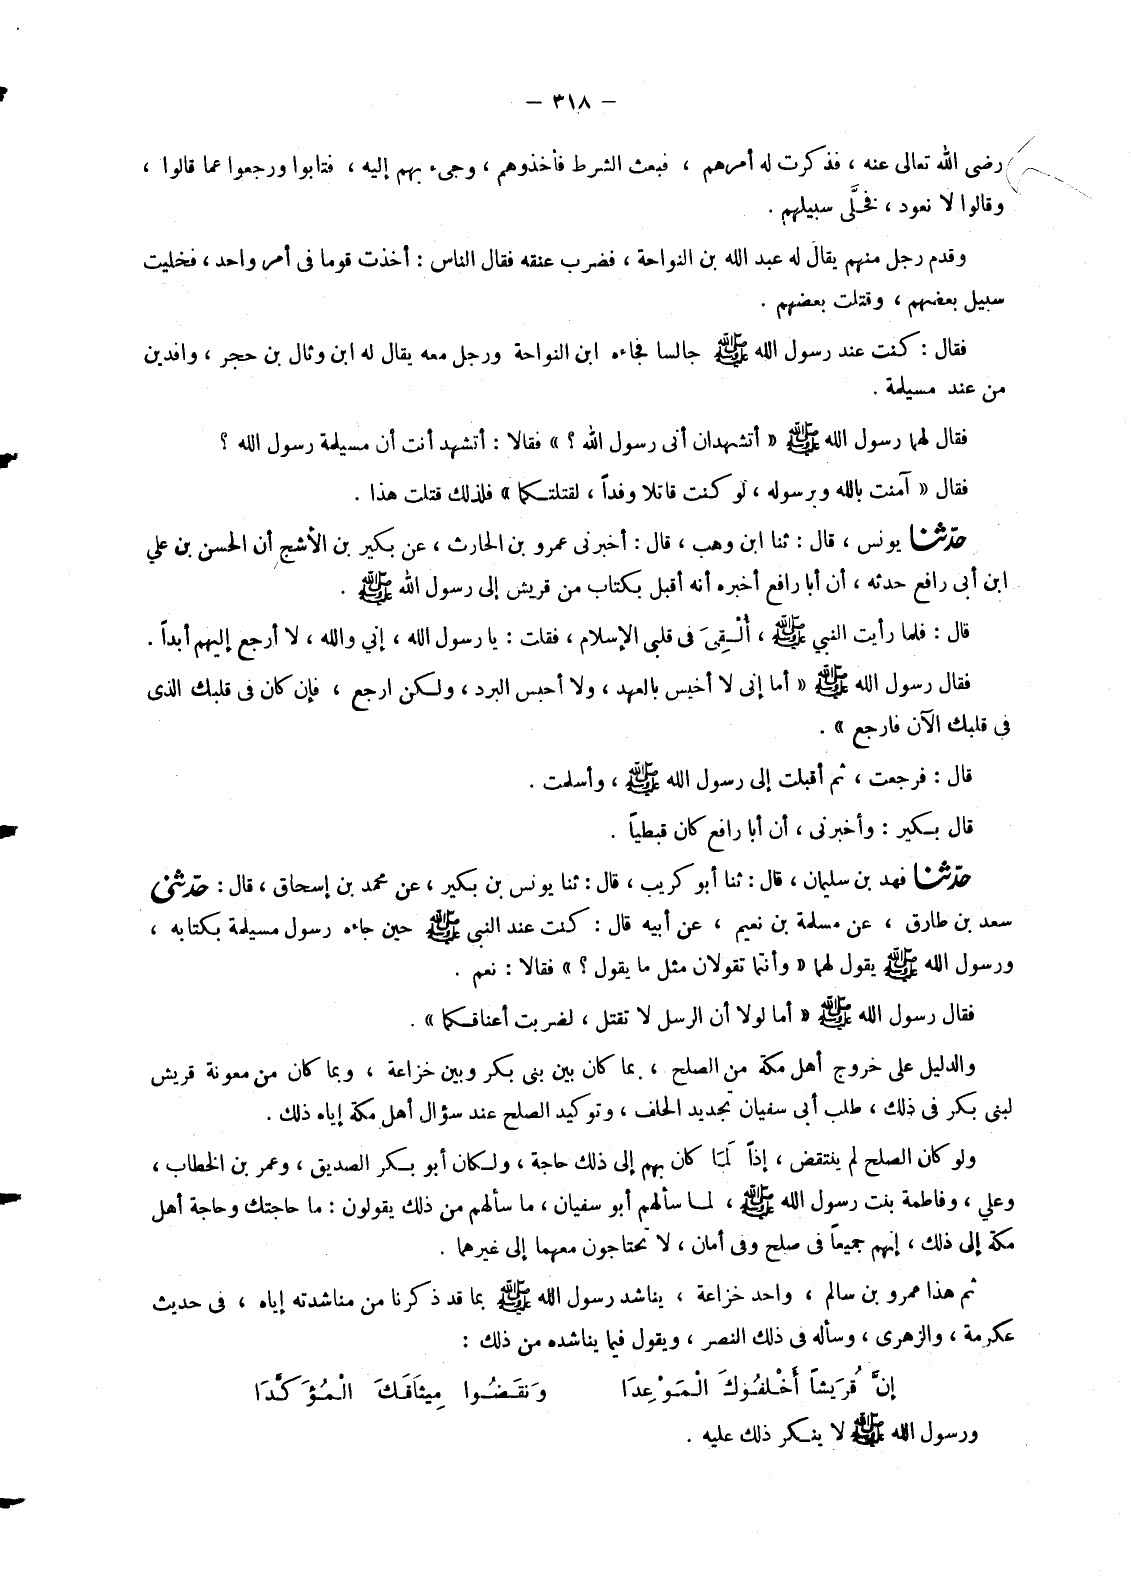 — ٣١٨ —
رضى الله تعالى عنه ، فذكرت له أمرهم ، فبعث الشرط فأخذوهم ، وجىء بهم إليه ، فتابوا ورجعوا عما قالوا ،
وقالوا لا نعود ، فخلَّى سبيلهم .
وقدم رجل منهم يقال له عبد الله بن النواحة ، فضرب عنقه فقال الناس : أخذت قوما فى أمر واحد ، فخليت
سبيل بعضهم ، وقتلت بعضهم .
فقال : كنت عند رسول الله ﷺ جالسا فجاءه ابن النواحة ورجل معه يقال له ابن وثال بن حجر ، وافدين
من عند مسيلمة .
فقال لهما رسول الله ﷺ « أتشهدان أنى رسول الله ؟ » فقالا : أتشهد أنت أن مسيلمة رسول الله ؟
فقال « آمنت بالله وبرسوله ، لو كنت قاتلا وفداً ، لقتلتكما » فلذلك قتلت هذا .
حدّثنا يونس ، قال : ثنا ابن وهب ، قال : أخبرنى عمرو بن الحارث ، عن بكير بن الأشج أن الحسن بن علي
ابن أبى رافع حدثه ، أن أبا رافع أخبره أنه أقبل بكتاب من قريش إلى رسول الله ﷺ .
قال : فلما رأيت النبي ﷺ ، أُلْـقِىَ فى قلبى الإسلام ، فقلت : يا رسول الله ، إني والله ، لا أرجع إليهم أبداً .
فقال رسول الله ﷺ « أما إنى لا أخيس بالعهد ، ولا أحبس البرد ، ولكن ارجع ، فإن كان فى قلبك الذى
فى قلبك الآن فارجع » .
قال : فرجعت ، ثم أقبلت إلى رسول الله ﷺ ، وأسلمت .
قال بكير : وأخبرنى ، أن أبا رافع كان قبطياً .
حدّثنا فهد بن سليمان ، قال : ثنا أبو كريب ، قال : ثنا يونس بن بكير ، عن محمد بن إسحاق ، قال : حدّثنى
سعد بن طارق ، عن مسلمة بن نعيم ، عن أبيه قال : كنت عند النبى ﷺ حين جاءه رسول مسيلمة بكتابه ،
ورسول الله ﷺ يقول لهما « وأنتما تقولان مثل ما يقول ؟ » فقالا : نعم .
فقال رسول الله ﷺ « أما لولا أن الرسل لا تقتل ، لضربت أعناقكما » .
والدليل على خروج أهل مكة من الصلح ، بما كان بين بنى بكر وبين خزاعة ، وبما كان من معونة قريش
لبنى بكر فى ذلك ، طلب أبى سفيان تجديد الحلف ، وتوكيد الصلح عند سؤال أهل مكة إياه ذلك .
ولو كان الصلح لم ينتقض ، إذاً لَمَا كان بهم إلى ذلك حاجة ، ولكان أبو بكر الصديق ، وعمر بن الخطاب ،
وعلي ، وفاطمة بنت رسول الله ﷺ ، لمـا سألهم أبو سفيان ، ما سألهم من ذلك يقولون : ما حاجتك وحاجة أهل
مكة إلى ذلك ، إنهم جميعاً فى صلح وفى أمان ، لا تحتاجون معهما إلى غيرهما .
ثم هذا عمرو بن سالم ، واحد خزاعة ، يناشد رسول الله ﷺ بما قد ذكرنا من مناشدته إياه ، فى حديث
عكرمة ، والزهرى ، وسأله فى ذلك النصر ، ويقول فيما يناشده من ذلك :
إنَّ قُرَيشاً أَخْـلفُوكَ الْمَوْعِدَا وَنقَـضُـوا مِيثَاقَـكَ الْمُؤَكَّـدَا
ورسول الله ﷺ لا ينكر ذلك عليه .